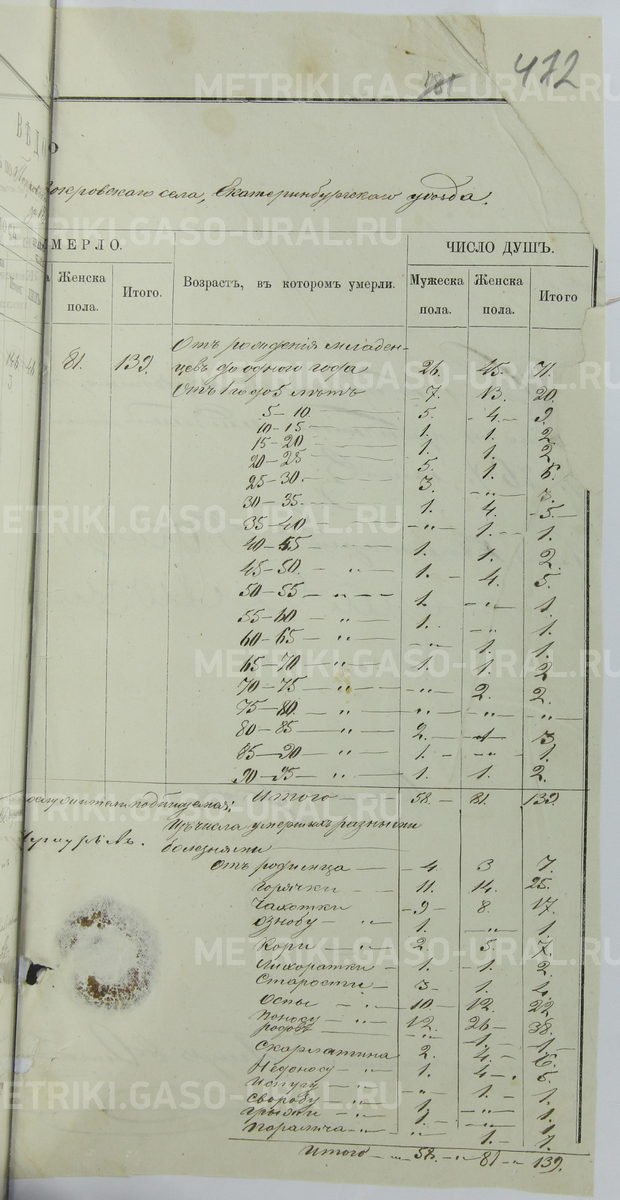 472
181
METRIKI.GASO-URAL.RU
Покровскаго села, Екатеринбургскаго уѣзда.
МЕРЛО. ЧИСЛО ДУШЪ.
Женска пола. Итого. Возрастъ, въ которомъ умерли. Мужеска пола. Женска пола. Итого
METRIKI.GASO-URAL.RU
Отъ рожденія младен-
81. 139. цевъ до одного года 26. 45. 71.
Отъ 1 год. 5 лѣтъ 7. 13. 20.
5–10. 5. 4. 9.
10–15 1. 1. 2.
15–20 1. 1. 2.
20–25 5. 1. 6.
25–30. 3. –„– 3.
30–35. 1. 4. 5.
METRIKI.GASO-URAL.RU
35–40 –„– 1. 1.
40–45 1. 1. 2.
45–50. „ 1. 4. 5.
50–55 – „ 1. –„– 1.
55–60 – „ 1. –„– 1.
60–65 – „ „ 1. 1.
METRIKI.GASO-URAL.RU
65–70 – „ 1. 1. 2
70–75 – „ –„– 2. 2.
75–80. – „ „ –„– „
80–85 – „ 2. 1 3.
85–90 – „ 1. –„– 1.
90–95 – „ 1. 1. 2.
Итого 58. 81. 139.
Изъ числа умершихъ разными
болезнями
Отъ родимца 4. 3 7.
Горячки 11. 14. 25.
Чахотки 9 8. 17.
Ознобу – „ 1. –„– 1.
METRIKI.GASO-URAL.RU
Кори „ 2. 5. 7.
Лихоратки 1. 1. 2.
Старости 3 1. 4.
Оспы – „ 10 12. 22
Поносу – „ 12. 26 38.
родовъ – „ „ 1. 1.
Скарлатина 2. 4. 6.
Недоносу – „ 1. 4 5.
METRIKI.GASO-URAL.RU
„ 1. 1.
1. „ 1.
Грыжи – „ 1. „ 1.
Паралича – „ „ 1. 1.
Итого 58. 81 139.